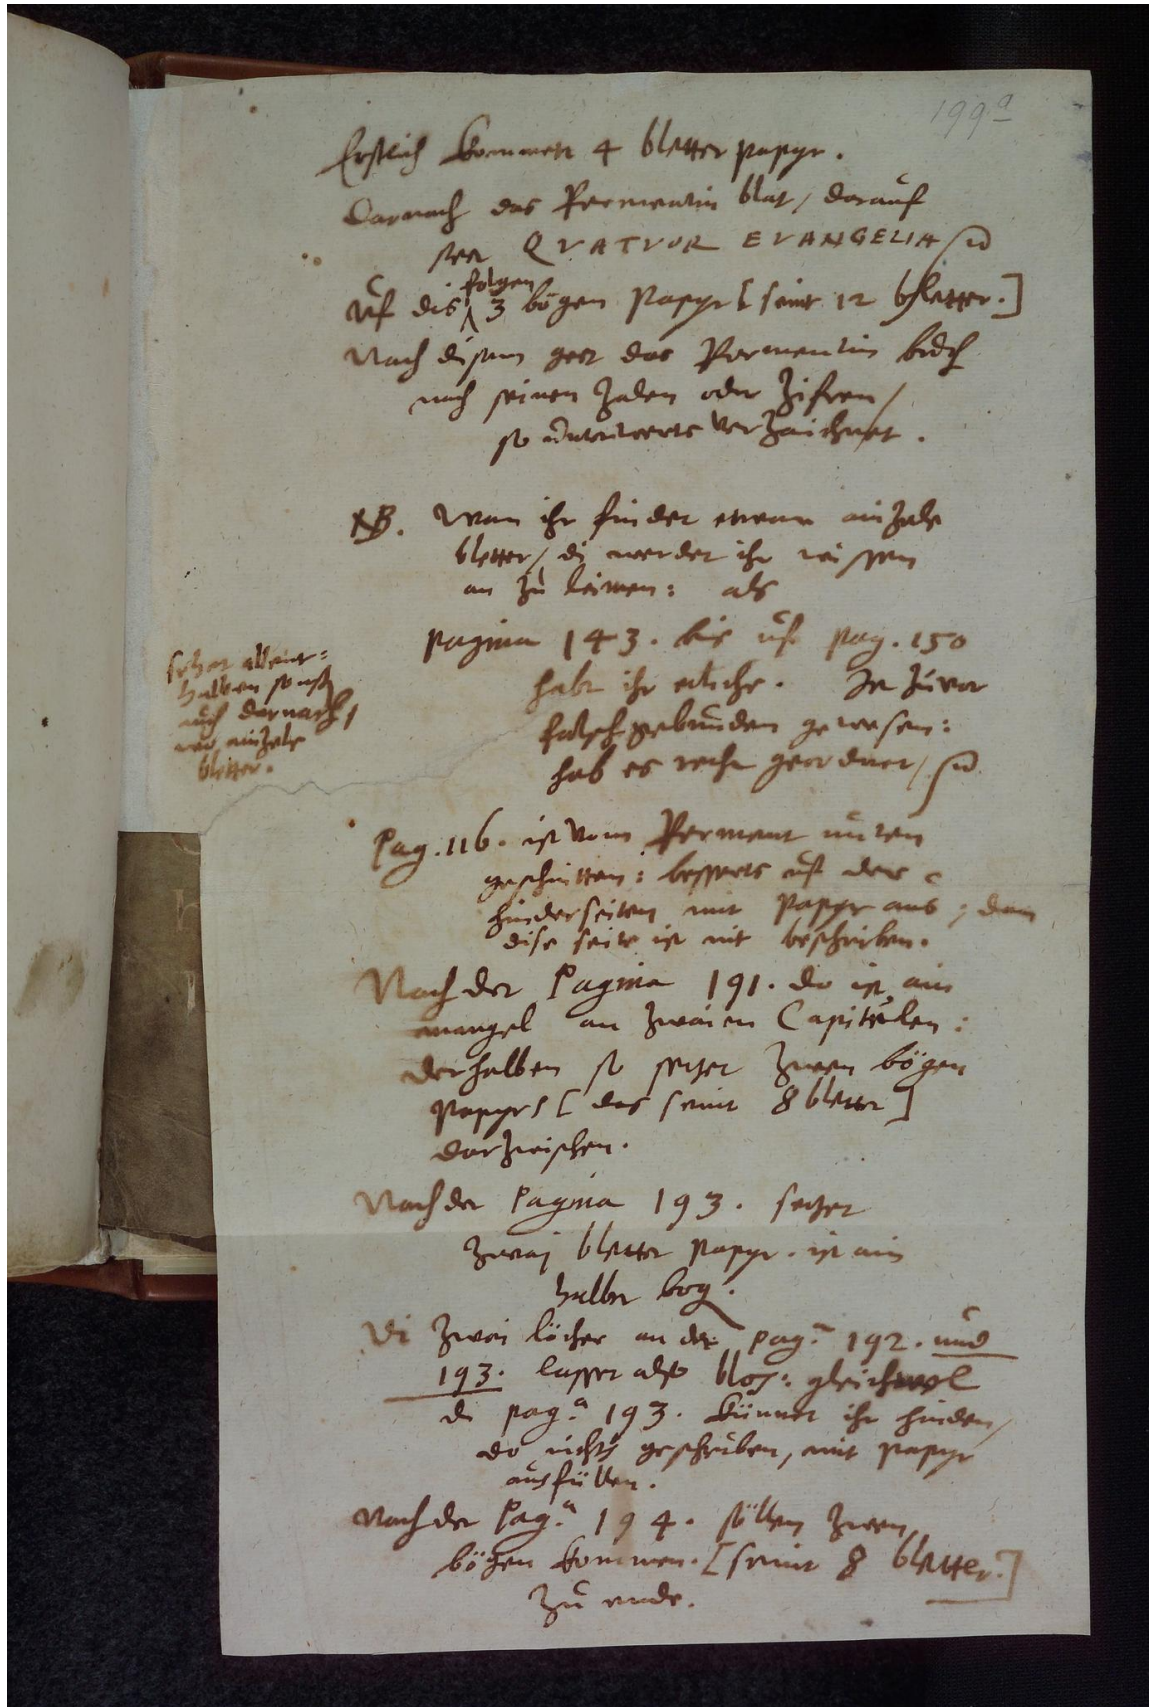 199a
Erstlich kommen 4 bletter papyr.
Darnach das Permentin blat, darauf
stet QVATVOR EVANGELIA
folgen
Uf dis 3 bögen Papyr [seint 12 bletter.]
Nach disem geet das Permentin buch
nach seinen Zalen oder Zifren,
so underwerts verzaichnet.
NB. Wan ihr findet etwan ainzele
bletter, di werdet ihr wissen
an zu leimen: als
pagina 143. bis uf pag. 150
habt ihr etliche. Ist zuvor
falsch gebunden gewesen:
hab es recht geordnet,
sehet allent=
halben sonst
auch darnach,
wo ainzele
bletter.
Pag. 116. ist vom Perment unten
geschnitten: besserts uf der
hinderseiten mit Papyr aus; dan
dise seite ist nit beschriben.
Nach der Pagina 191. do ist ain
mangel an zwaien Capitulen:
derhalben so setzet zwen bögen
Papyrs [das seint 8 bletter]
darzwischen.
Nach der Pagina 193. setzet
zwai bletter papyr. ist ain
halber bog.
Di zwai löcher an der pag.a 192. und
193. lasset also blos: gleichwol
di pag.a 193. künnet ihr hinden,
do nichts geschriben, mit papyr
ausfüllen.
Nach der Pag.a 194. söllen zwen
bögen kommen. [seint 8 bletter.]
zu ende.